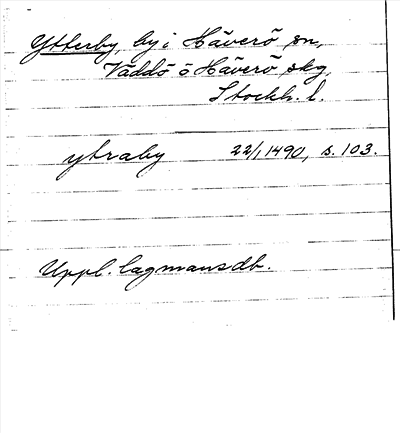 Ytterby, by i Häverö sn,
Väddö o Häverö skg,
Stockh. l.
ytraby 22/1 1490, s. 103.
Uppl. lagmansdb.